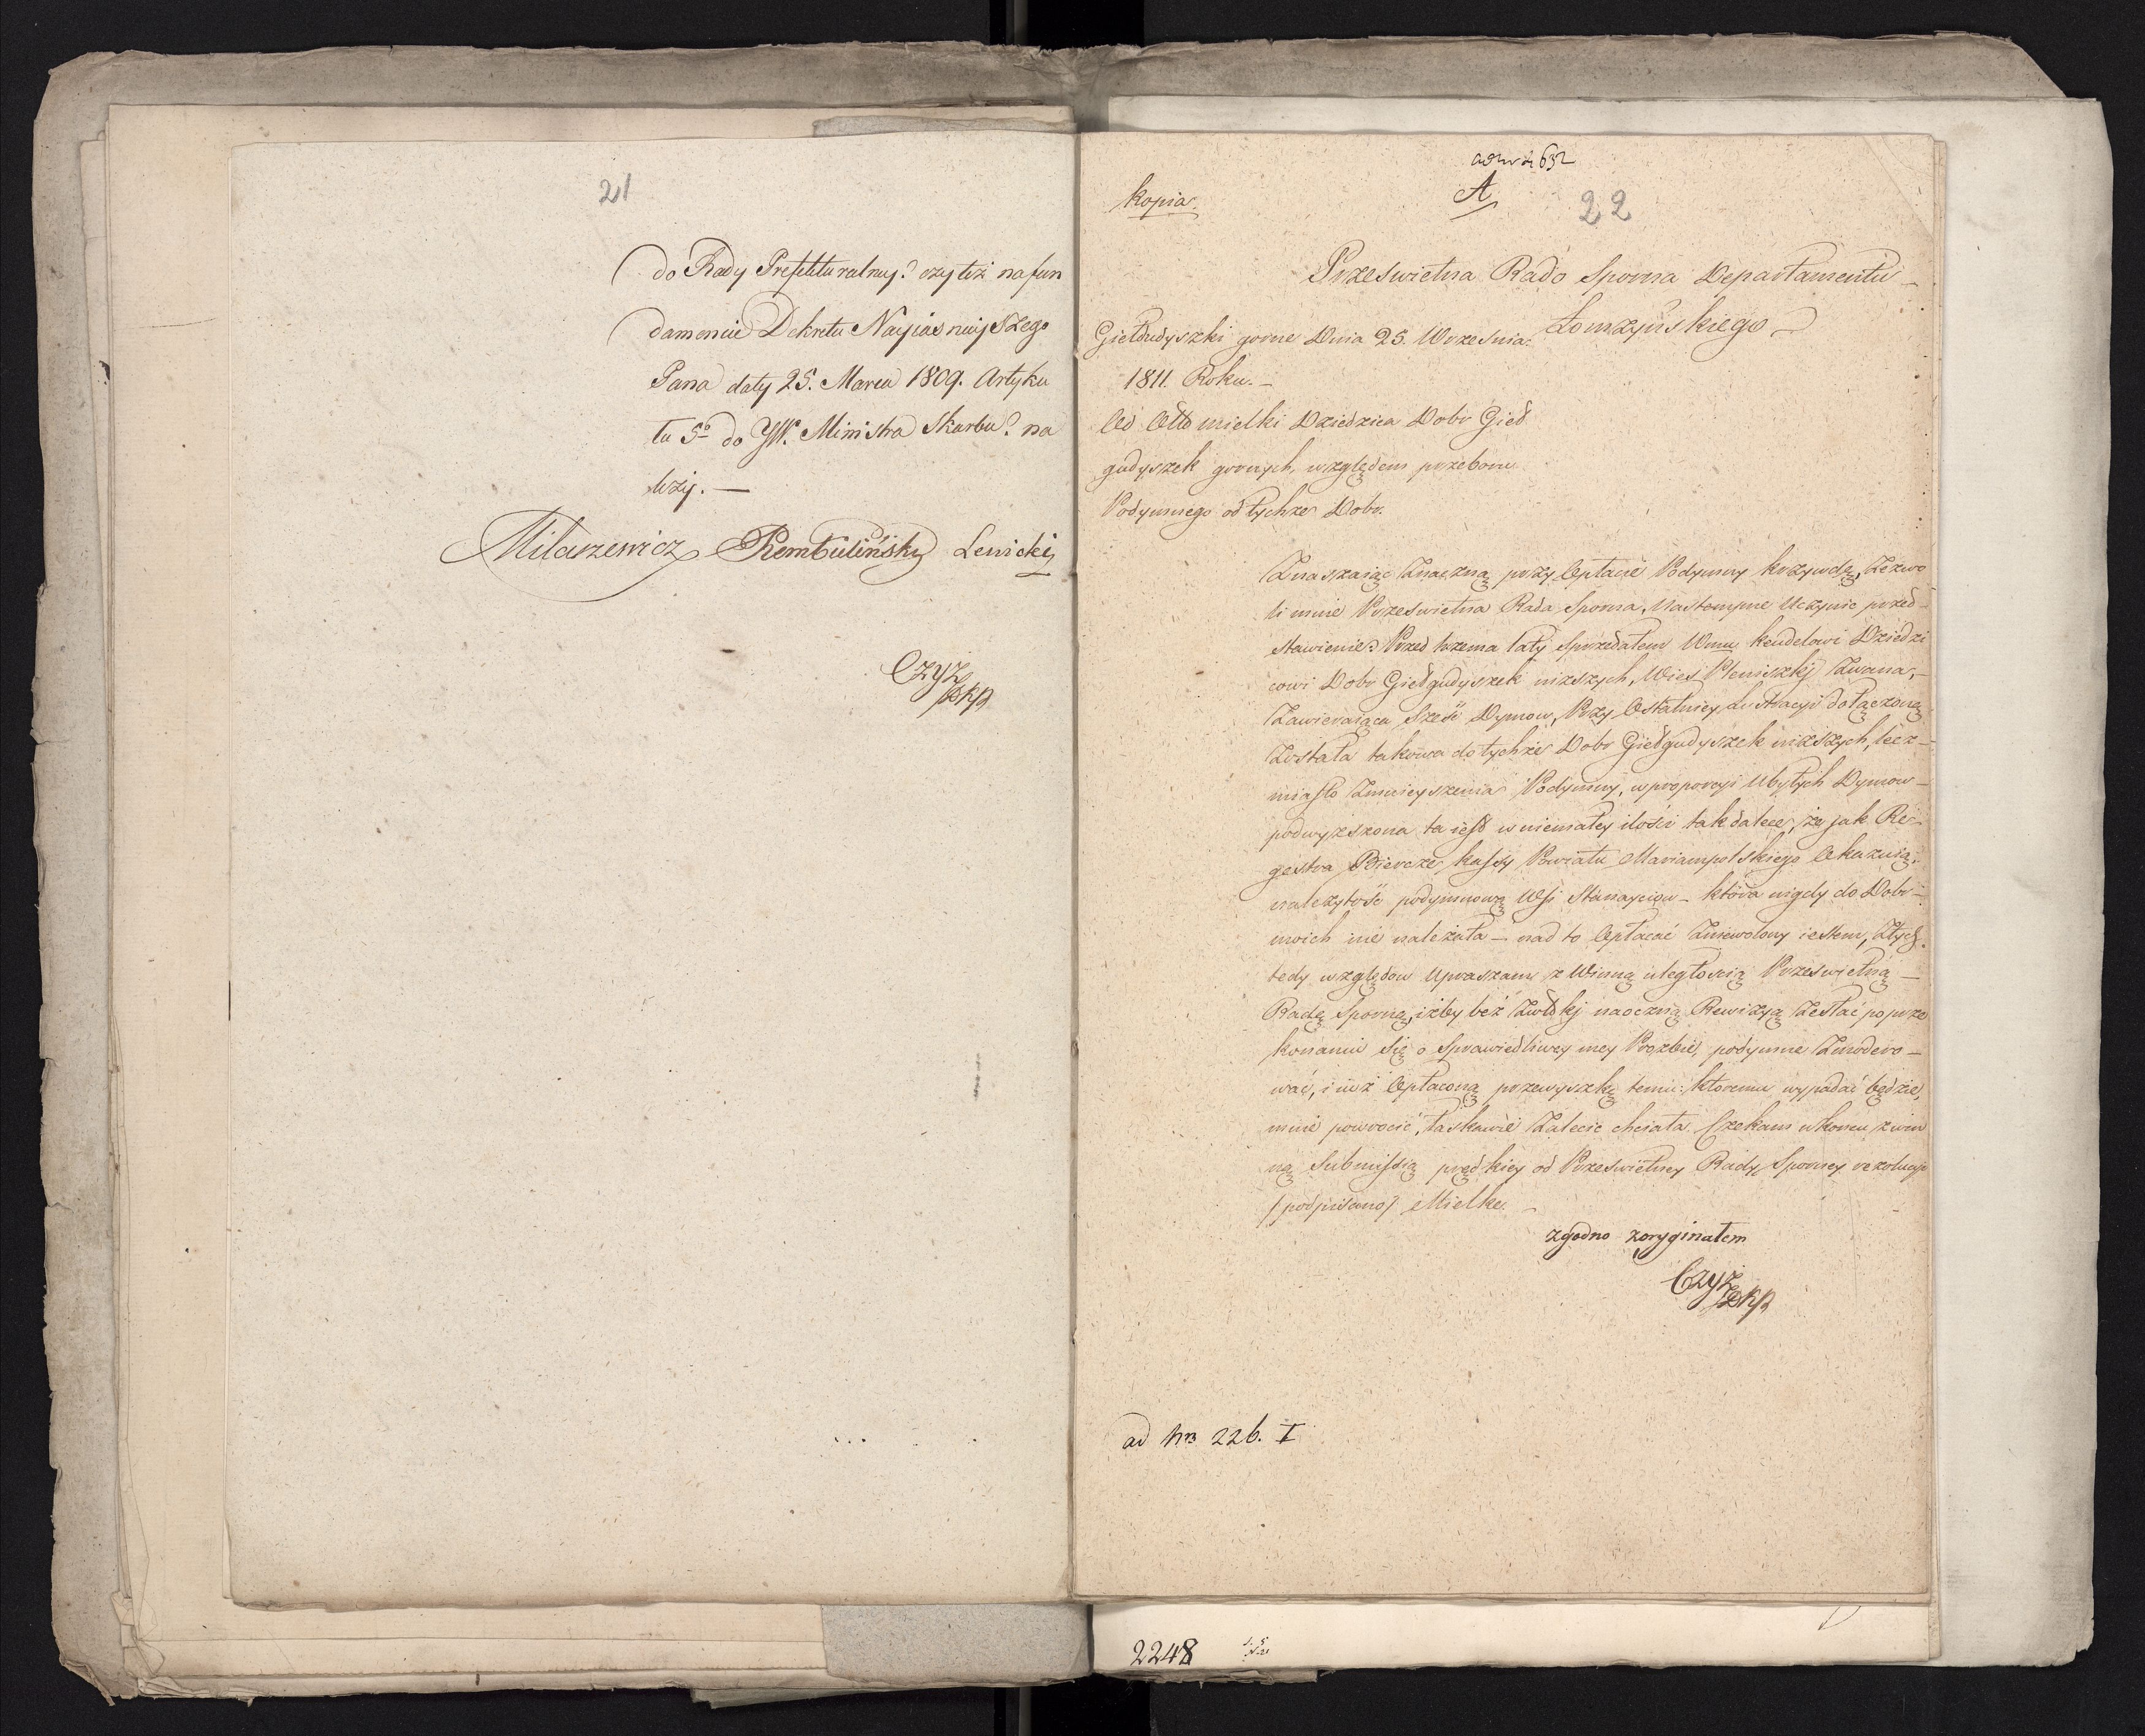 21
do Rady Prefekturalney? czyteż na fun
damencie Dekretu Nayiasnieyszego
Pana daty 25. Marca 1809. Artyku
łu 5º do JW. Ministra Skarbu? na
leży. —
Milaszewicz Rembieliński Lenicki
Czyż
kopia.
A
22
Przeswietna Rado Sporna Departamentu
Łomżyńskiego
Giełgudyszki gorne Dnia 25. Wrzesnia.
1811. Roku. —
Od Otto mielki Dziedzica Dobr Gieł
gudyszek gornych, względem przeboru
Podymnego od tychże Dobr.
Znaszaiąc Znaczną przy Opłacie Podymny krzywdę, Zezwo
li mnie Przeswietna Rada Sporna, Nastempne Uczynic przed-
stawienie? Przed trzema laty Sprzedałem Wmu kendelowi Dziedzi
cowi Dobr Giełgudyszek niższych, Wieś Pleniszkj Zwana, —
Zawieraiąca Sześć Dymow, Przy Ostatniey Lustracyi dołączoną
Została takowa do tychże Dobr Giełgudyszek niższych, lecz —
miasto Zmnieyszenia Podymny, w proporcyi Ubyłych Dymow —
podwyższona ta iest w niemałey ilości tak dalece, że jak Re-
gestra Biercze kassy Powiatu Mariampolskiego Okazuią.
należytość podymnową Wsi Stanayciow — ktora nigdy do Dobr —
moich nie należała — nad to Opłacać Zniewolony iestem, Ztych
tedy względow Upraszam z Winną uległością Przeswietną —
Radę Sporną, iżby bez Zwłokj naoczną Rewizyą Zesłać po prze
konaniu się o Sprawiedliwey mey Prozbie, podymne Zmodero —
wać, i iuż Opłaconą przewyszkę temu: ktoremu wypadać będzie,
mnie powrocić, łaskawie Zalecic chciała. Czekam w koncu z win
ną Submissią prędkiey od Przeswietney Rady Sporney rezolucyi
/podpisano/ Mielke. —
zgodno zoryginałem
Czyż
ad Nrs 226. I
2248